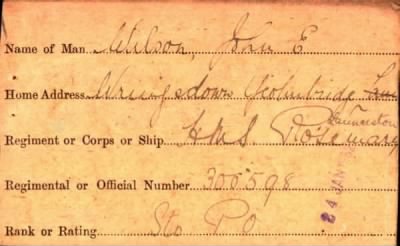 Name of Man Wilson, John E
Home Address Wringsdown Yeolmbridge
Launceston
Regiment or Corps or Ship HMS Rosemary
Regimental or Official Number 300598
24 JAN
Rank or Rating Sto P O